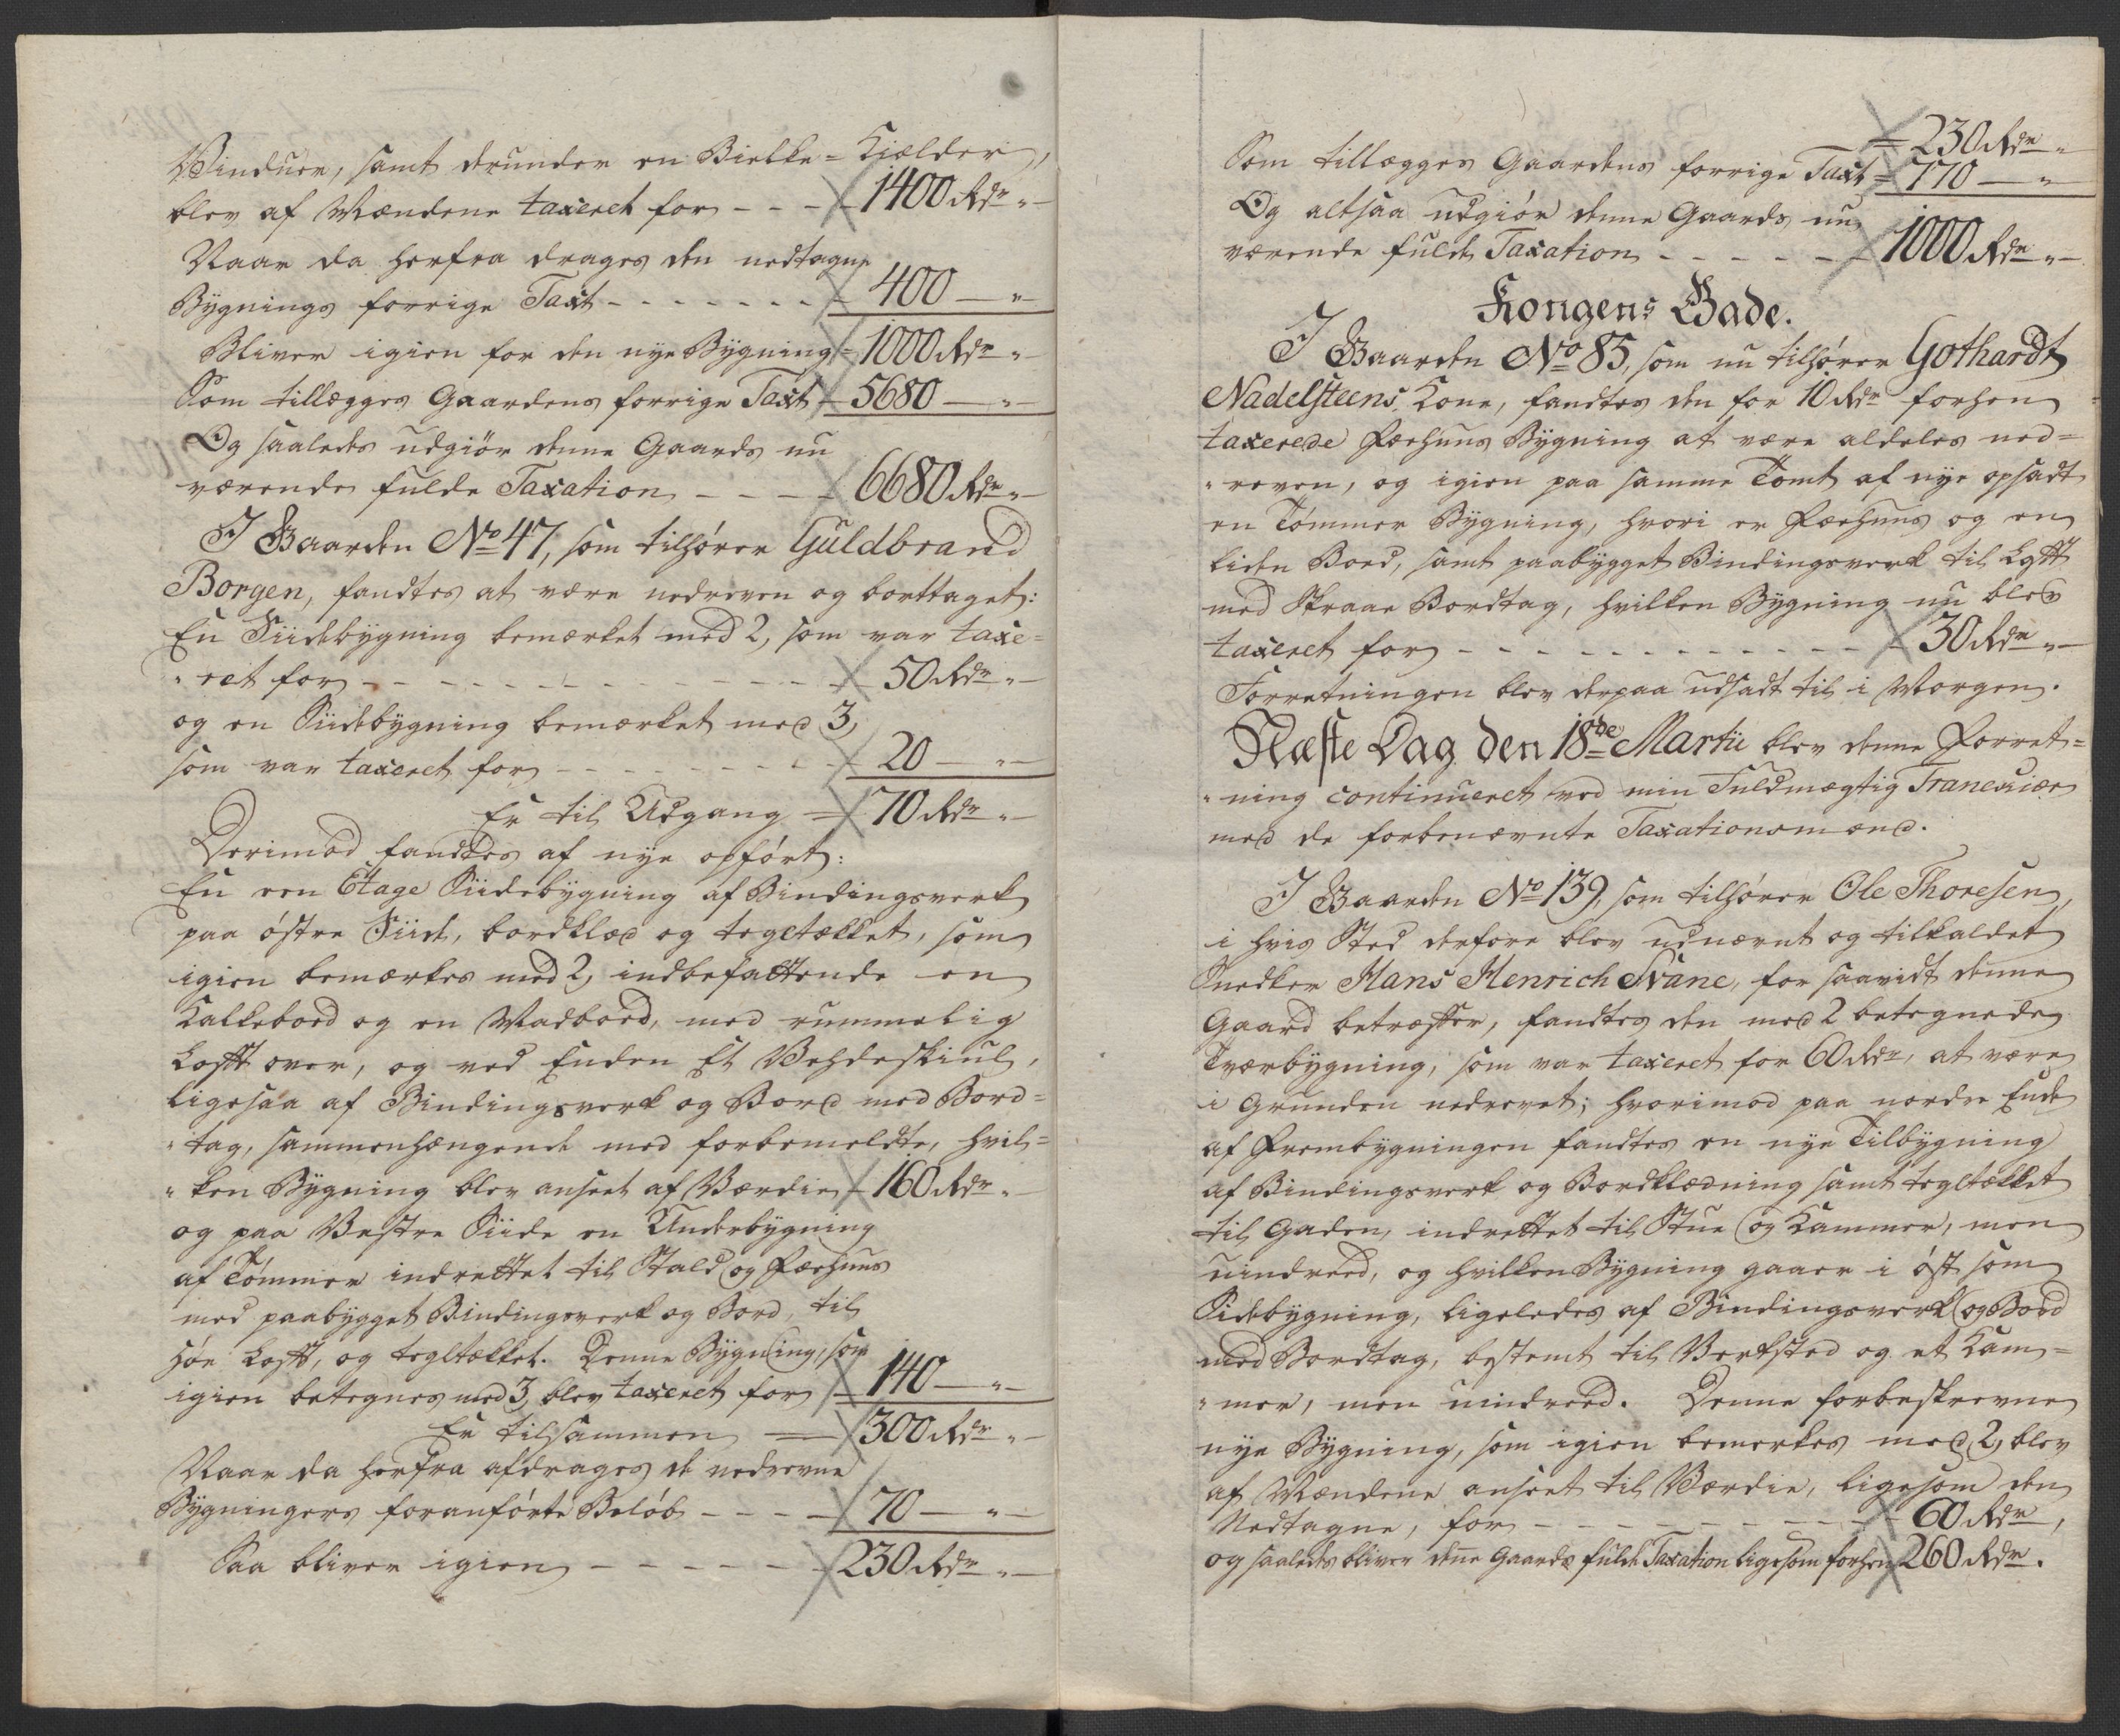 Vinduer, samt derunder en Bielke-Kielder,
blev af Mændene taxeret for - - - 1400 Rdr "
Naar da herfra drages den nedtagne
Bygnings forrige Taxt - - - - - - - 400 — "
Bliver igien for den nye Bygning = 1000 Rdr "
Som tillægges Gaardens forrige Taxt 5680 — "
Og saaledes udgiør denne Gaards nu
værende fulde Taxation - - - - 6680 Rdr "
I Gaarden No 47, som tilhører Guldbrand
Borgen, fandtes at være nedreven og borttaget:
En Siidebygning bemærket med 2, som var taxe=
" ret for - - - - - - - - - - - - 50 Rdr "
og en Siidebygning bemærket med 3,
som var taxeret for - - - - - - - - 20 — "
Er til Udgang = 70 Rdr "
Derimod fandtes af nye opført:
En een Etage Siidebygning af Bindingsverk
paa østre Siide, bordklæd og tegltækket, som
igien bemærkes med 2, indbefattende en
Kalkeboed og en Madboed, med rummelig
Loft over, og ved Enden Et Vehdeskiul,
ligesaa af Bindingsverk og Bord med Bord=
" tag, sammenhængende med forbemeldte, hvil=
" ken Bygning blev anseet af Værdie 160 Rdr "
og paa Vestre Siide en Underbygning
af Tømmer indrettet til Stald og Fæehuus
med paabygget Bindingsverk og Bord, til
Høe Loft, og tegltækket. Denne Bygning, som
igien betegnes med 3, blev taxeret for 140 — "
Er tilsammen = 300 Rdr "
Naar da herfra afdrages de nedrevne
Bygningers foranførte Beløb - - - - 70 — "
Saa bliver igien - - - - - 230 Rdr "
= 230 Rdr "
Som tillægges Gaardens forrige Taxt = 770 — "
Og altsaa udgiør denne Gaards nu
værende fulde Taxation - - - - - 1000 Rdr "
Kongens Gade.
I Gaarden No 85, som nu tilhører Gothardt
Nadelsteens Kone, fandtes den for 10 Rdr forhen
taxerede Fæehuus Bygning at være aldeles ned=
" reven, og igien paa samme Tomt af nye opsadt
en Tømmer Bygning, hvori er Fæehuus og en
liden Boed, samt paabygget Bindingsverk til Loft
med Skraae Bordtag, hvilken Bygning nu blev
taxeret for - - - - - - - - - - - - 30 Rdr "
Forretningen blev derpaa udsadt til i Morgen.
Næste Dag den 18de Martii blev denne Forret=
" ning continueret ved min Fuldmægtig
med de forbenævnte Taxationsmænd.
I Gaarden No 139, som tilhører Ole Thoresen,
i hvis Sted derfore blev udnævnt og tilkaldet
Snedker Hans Henrich Svane, for saavidt denne
Gaard betræffer, fandtes den med 2 betegnede
Tværbygning, som var taxeret for 60 Rdr, at være
i Grunden nedrevet; hvorimod paa nordre Ende
af Frembygningen fandtes en nye Tilbygning
af Bindingsverk og Bordklædning samt tegltækket
til Gaden, indrettet til Stue og Kammer, men
uindreed, og hvilken Bygning gaaer i øst som
Sidebygning, ligeledes af Bindingsverk og Bord
med Bordtag, bestemt til Verksted og et Kam=
" mer, men uindreed. Denne forbeskrevne
nye Bygning, som igien bemerkes med 2, blev
af Mændene anseet til Værdie, ligesom den
Nedtagne, for - - - - - - - - - 60 Rdr,
og saaledes bliver denne Gaards fulde Taxation ligesom forhen 260 Rdr.